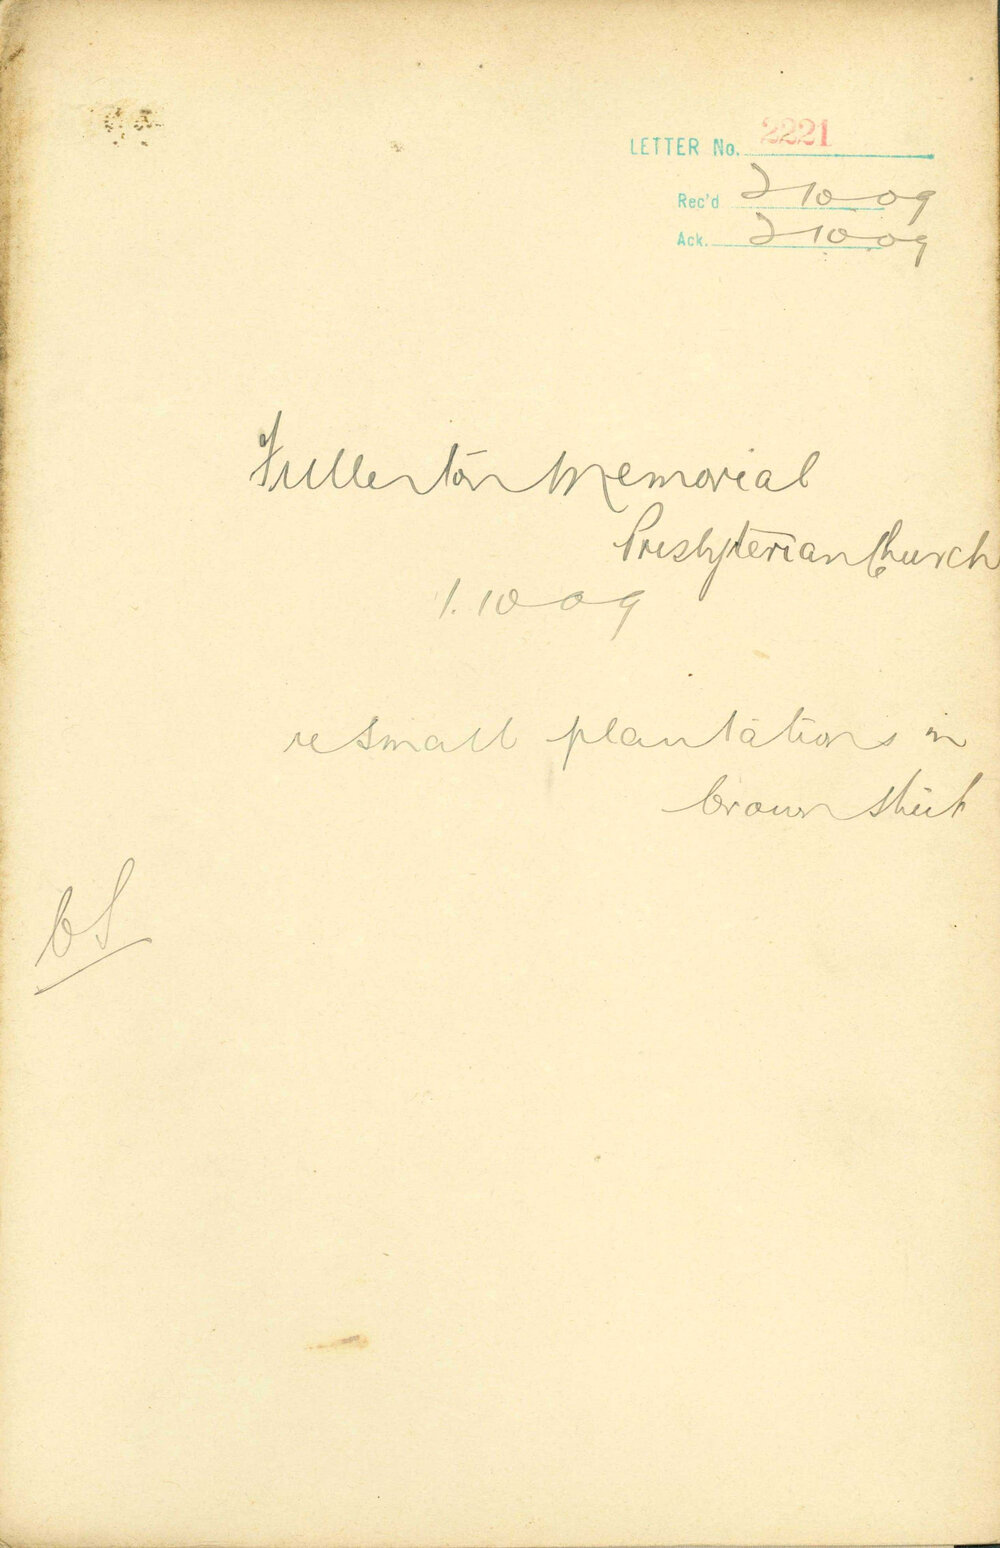 LETTER No. 2221
Rec'd 2 10 09
Ack. 2 10 09
Fullerton Memorial
Presbyterian Church
1. 10 09
re small plantations in
Crown Street
CS